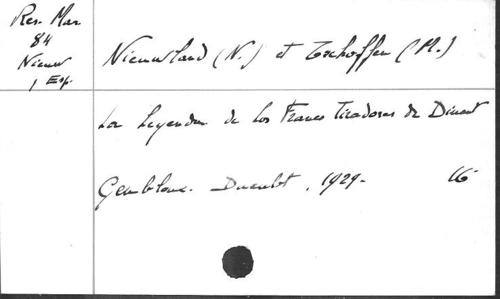 Res. Mar.
84
Nieuw
1 Esp.
Nieuwland (N.) et Tschoffen (M.)
La Leyenda de los Francs Tiradores de Dinant
Gembloux. Duculot, 1929.
16